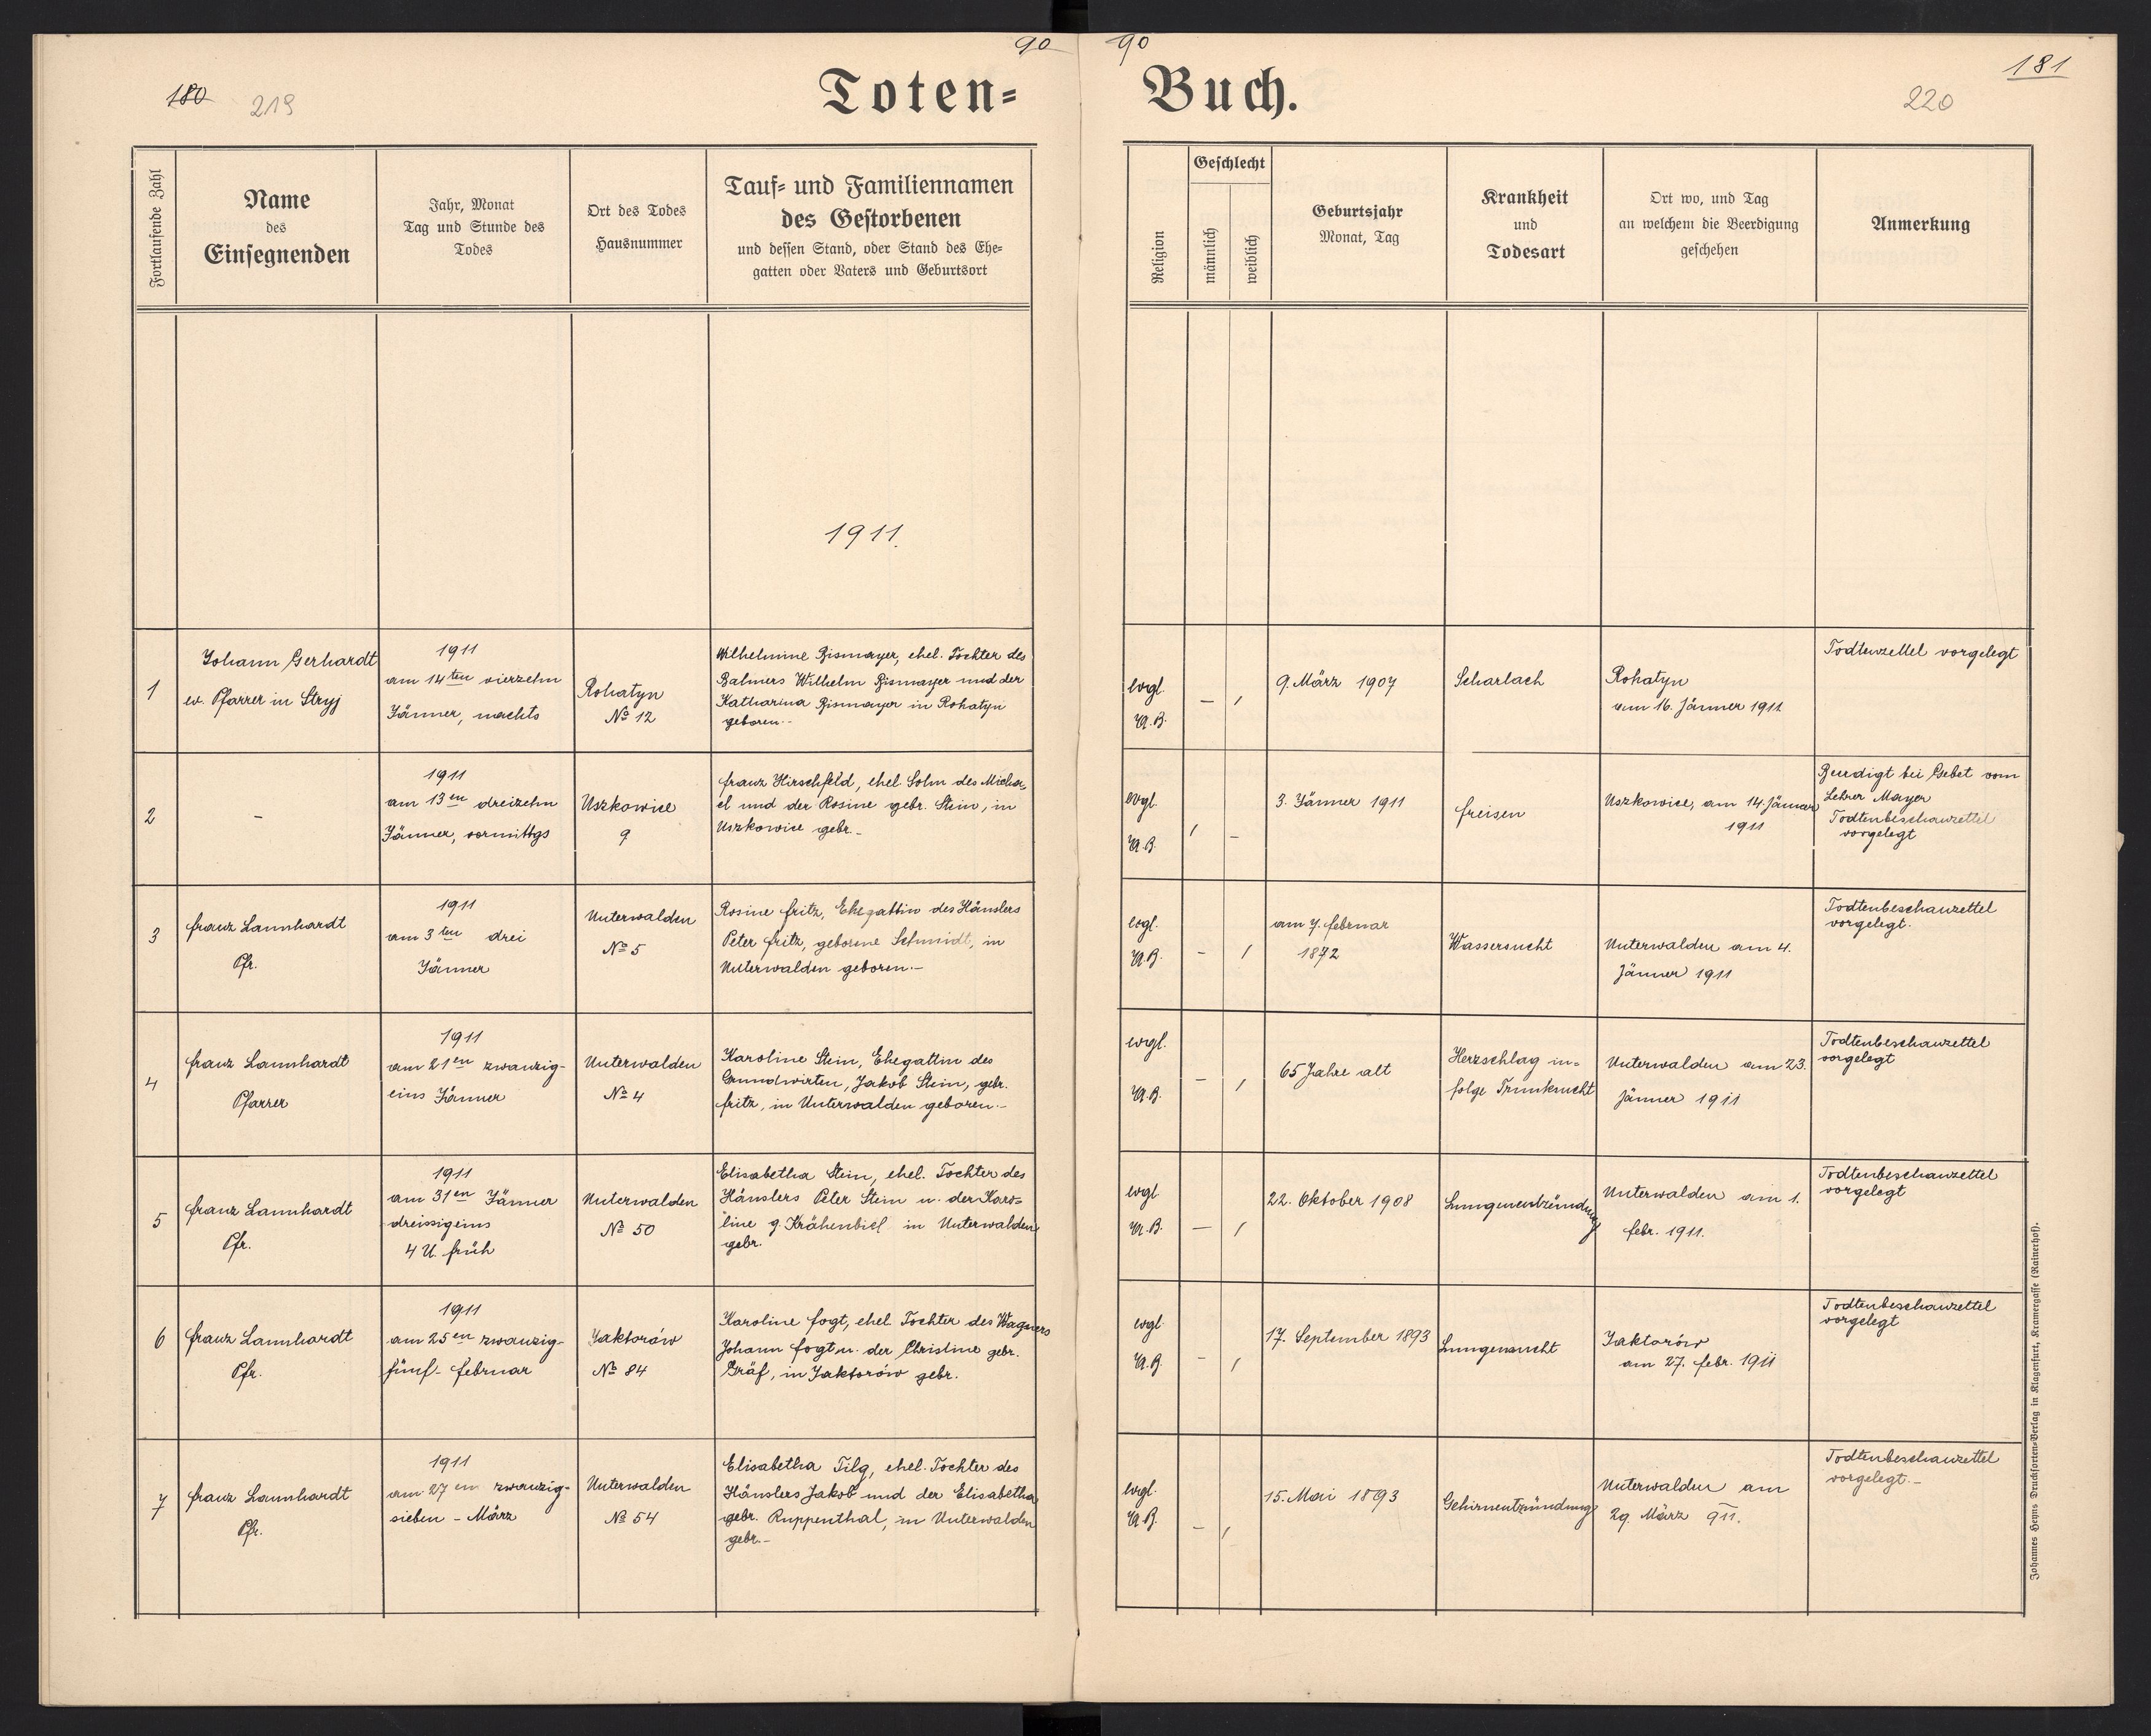 90
90
180
219
Toten=
Buch.
181
220
Fortlaufende Zahl
Name
des
Einsegnenden
Jahr, Monat
Tag und Stunde des
Todes
Ort des Todes
Hausnummer
Tauf= und Familiennamen
des Gestorbenen
und dessen Stand, oder Stand des Ehe=
gatten oder Vaters und Geburtsort
Religion
Geschlecht
männlich
weiblich
Geburtsjahr
Monat, Tag
Krankheit
und
Todesart
Ort wo, und Tag
an welchem die Beerdigung
geschehen
Anmerkung
1911.
1
Johann Gerhardt
ev. Pfarrer in Stryj
1911
am 14ten vierzehn
Jänner, nachts
Rohatyn
No 12
Wilhelmine Bismayer, ehel. Tochter des
Wilhelm Bismayer und der
Katharina Bismayer in Rohatyn
geboren.-
evgl.
A.B.
— ,
9. März 1907
Scharlach
Rohatyn
am 16. Jänner 1911
Todtenzettel vorgelegt
2
-
1911
am 13en dreizehn
Jänner, vormittgs
Uszkowice
9
Franz Hirschfeld, ehel Sohn des Micha-
el und der Rosine gebr. Stein, in
Uszkowice gebr.-
evgl.
A.B.
, -
3. Jänner 1911
Freisen
Uszkowice, am 14. Jänner
1911
Beerdigt bei Gebet vom
Lehrer Mayer
Todtenbeschauzettel
vorgelegt
3
Franz Lannhardt
Pfr.
1911
am 3ten drei
Jänner
Unterwalden
No 5
Rosine Fritz, Ehegattin des Häuslers
Peter Fritz, geborene Schmidt, in
Unterwalden geboren.-
evgl.
A.B.
- ,
am 7. Februar
1872
Wassersucht
Unterwalden am 4.
Jänner 1911
Todtenbeschauzettel
vorgelegt.
4
Franz Lannhardt
Pfarrer
1911
am 21en zwanzig-
eins Jänner
Unterwalden
No 4
Karoline Stein, Ehegattin des
Grundwirten, Jakob Stein, gebr.
Fritz, in Unterwalden geboren.-
evgl.
A.B.
- ,
65 Jahre alt
Herzschlag in=
folge Trunksucht
Unterwalden am 23.
Jänner 1911
Todtenbeschauzettel
vorgelegt
5
Franz Lannhardt
Pfr.
1911
am 31en Jänner
dreissigeins
4 U. früh
Unterwalden
No 50
Elisabetha Stein, ehel. Tochter des
Häuslers Peter Stein u. der Karo=
line g. Krähenbiel in Unterwalden
gebr.
evgl
A.B.
— ,
22. Oktober 1908
Lungenentzündung
Unterwalden am 1.
Febr. 1911.
Todtenbeschauzettel
vorgelegt
6
Franz Lannhardt
Pfr.
1911
am 25en zwanzig-
fünf- Februar
Jaktorów
No 84
Karoline Fogt, ehel Tochter des Wagners
Johann Fogt u. der Christine gebr.
Gräf, in Jaktorów gebr.
evgl
A.B.
- ,
17. September 1893
Lungensucht
Jaktorów
am 27. Febr. 1911
Todtenbeschauzettel
vorgelegt
7
Franz Lannhardt
Pfr.
1911
am 27en zwanzig-
sieben - März
Unterwalden
No 54
Elisabetha Filg, ehel. Tochter des
Häuslers Jakob und der Elisabetha
gebr. Ruppenthal, in Unterwalden
gebr.-
evgl.
A.B.
- ,
15. Mai 1893
Gehirnentzündung
Unterwalden am
29. März 911.
Todtenbeschauzettel
vorgelegt.-
Johannes Heyns Drucksorten-Verlag in Klagenfurt, Kramergasse (Rainerhof).